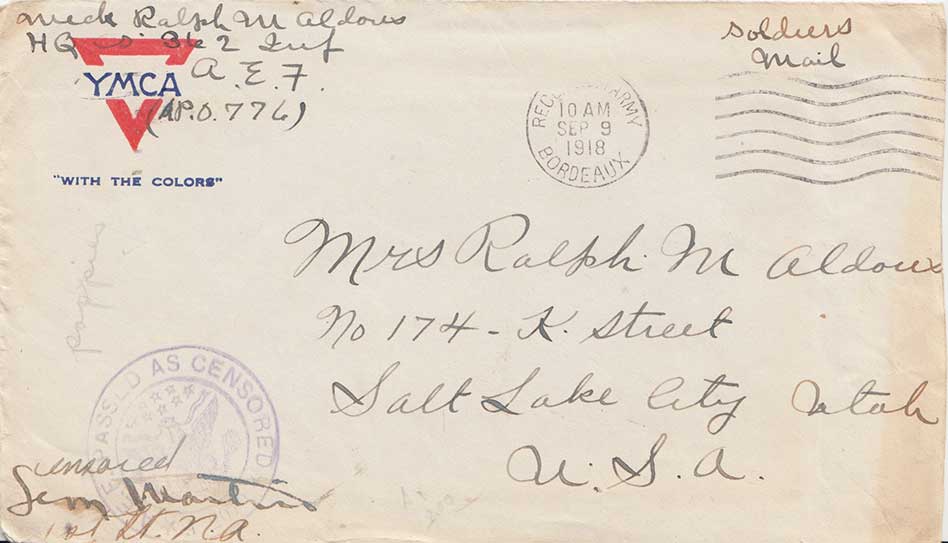 Mech Ralph M Aldous
HQ Co. 362 Inf
A. E. F.
(A.P.O. 776)
YMCA
"WITH THE COLORS"
soldiers
Mail
ARMY
10 AM
SEP 9
1918
BORDEAUX
Mrs Ralph M Aldous
No 174 - K. Street
Salt Lake City Utah
U. S. A.
poppies
PASSED AS CENSORED
censored
1st Lt. N.A.